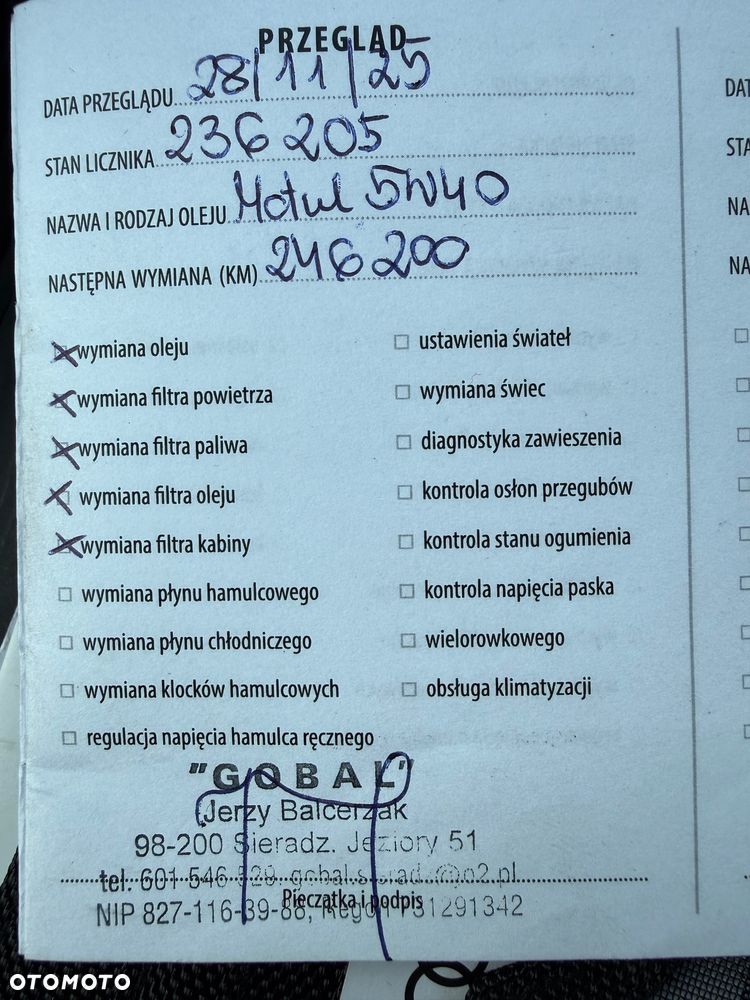 PRZEGLĄD
DATA PRZEGLĄDU 28/11/25
STAN LICZNIKA 236 205
NAZWA I RODZAJ OLEJU Motul 5W40
NASTĘPNA WYMIANA (KM) 246 200
wymiana oleju
wymiana filtra powietrza
wymiana filtra paliwa
wymiana filtra oleju
wymiana filtra kabiny
wymiana płynu hamulcowego
wymiana płynu chłodniczego
wymiana klocków hamulcowych
regulacja napięcia hamulca ręcznego
ustawienia świateł
wymiana świec
diagnostyka zawieszenia
kontrola osłon przegubów
kontrola stanu ogumienia
kontrola napięcia paska
wielorowkowego
obsługa klimatyzacji
"GOBAL"
Jerzy Balcerzak
98-200 Sieradz. Jeziory 51
tel. 601 546 gobal.sieradz@o2.pl
NIP 827-116-39-88, Regon 731291342
Pieczątka i podpis
DAT
STA
NA
NA
OTOMOTO